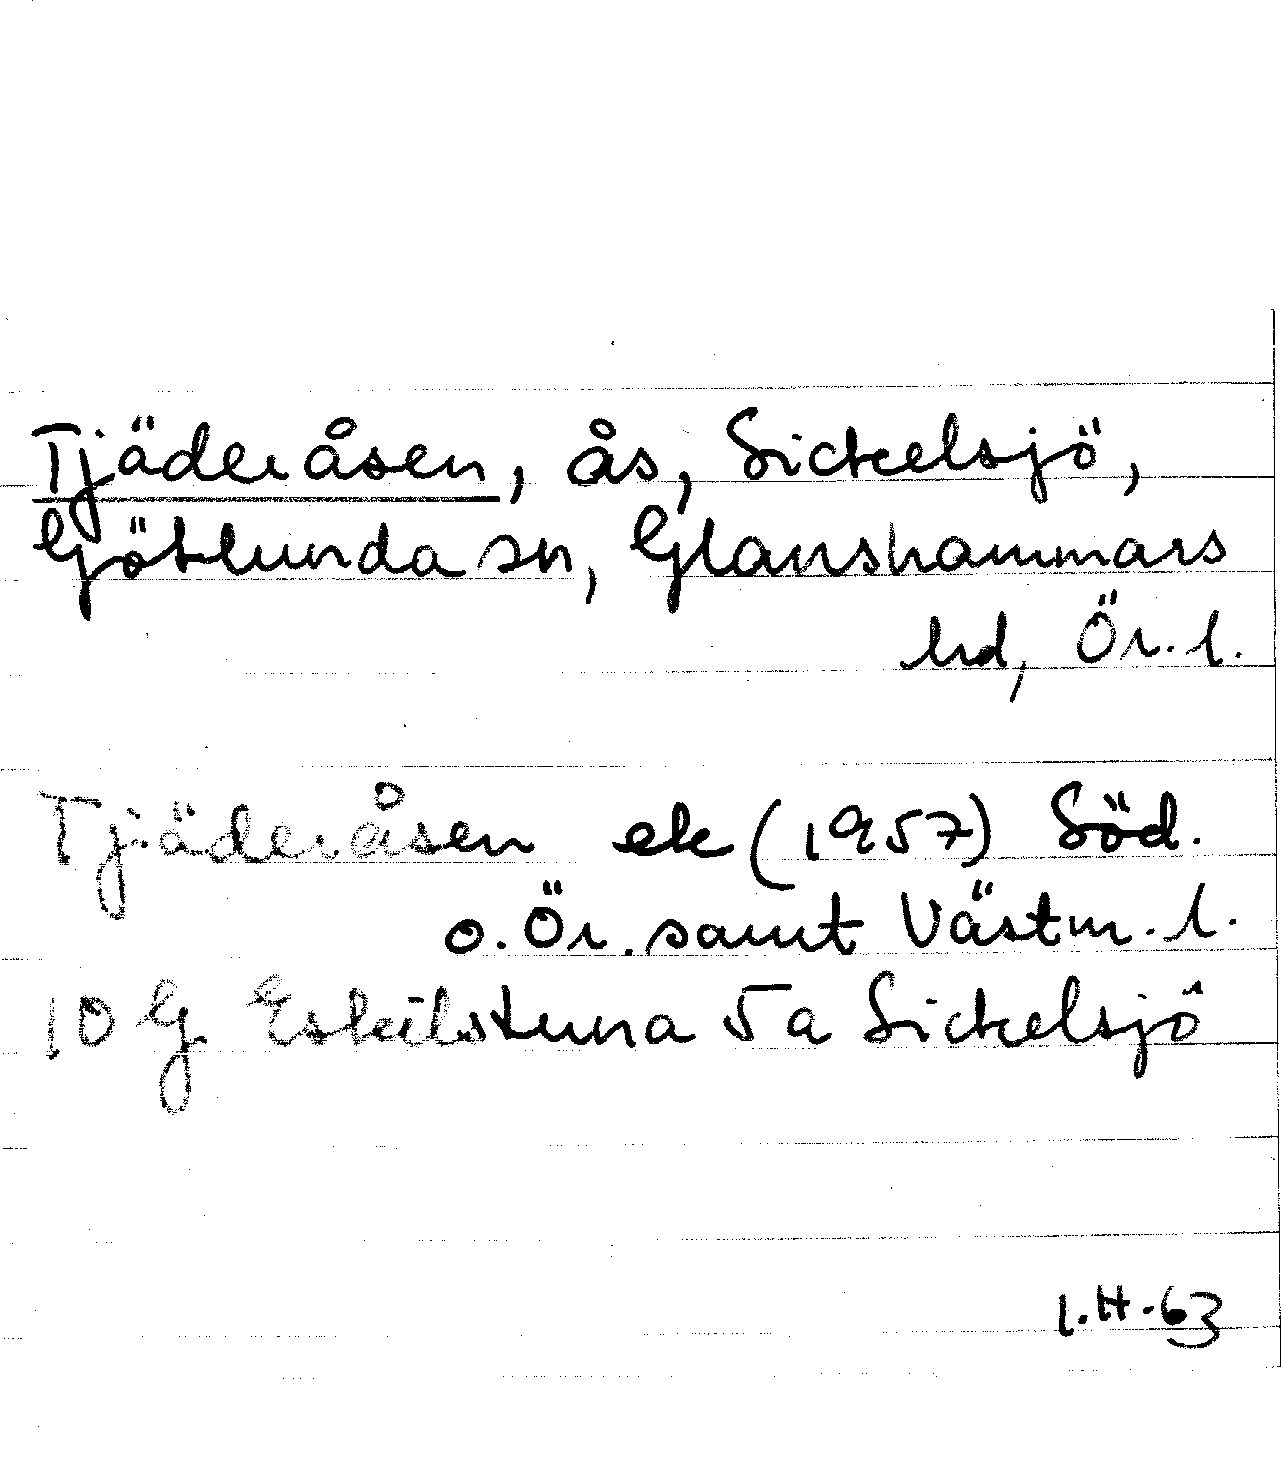 Tjäderåsen, ås, Sickelsjö,
Götlunda sn, Glanshammars
hd, Ör. l.
Tjäderåsen ek (1957) Söd.
o. Ör. samt Västm. l.
10 G Eskilstuna 5 a Sickelsjö
I.H-63